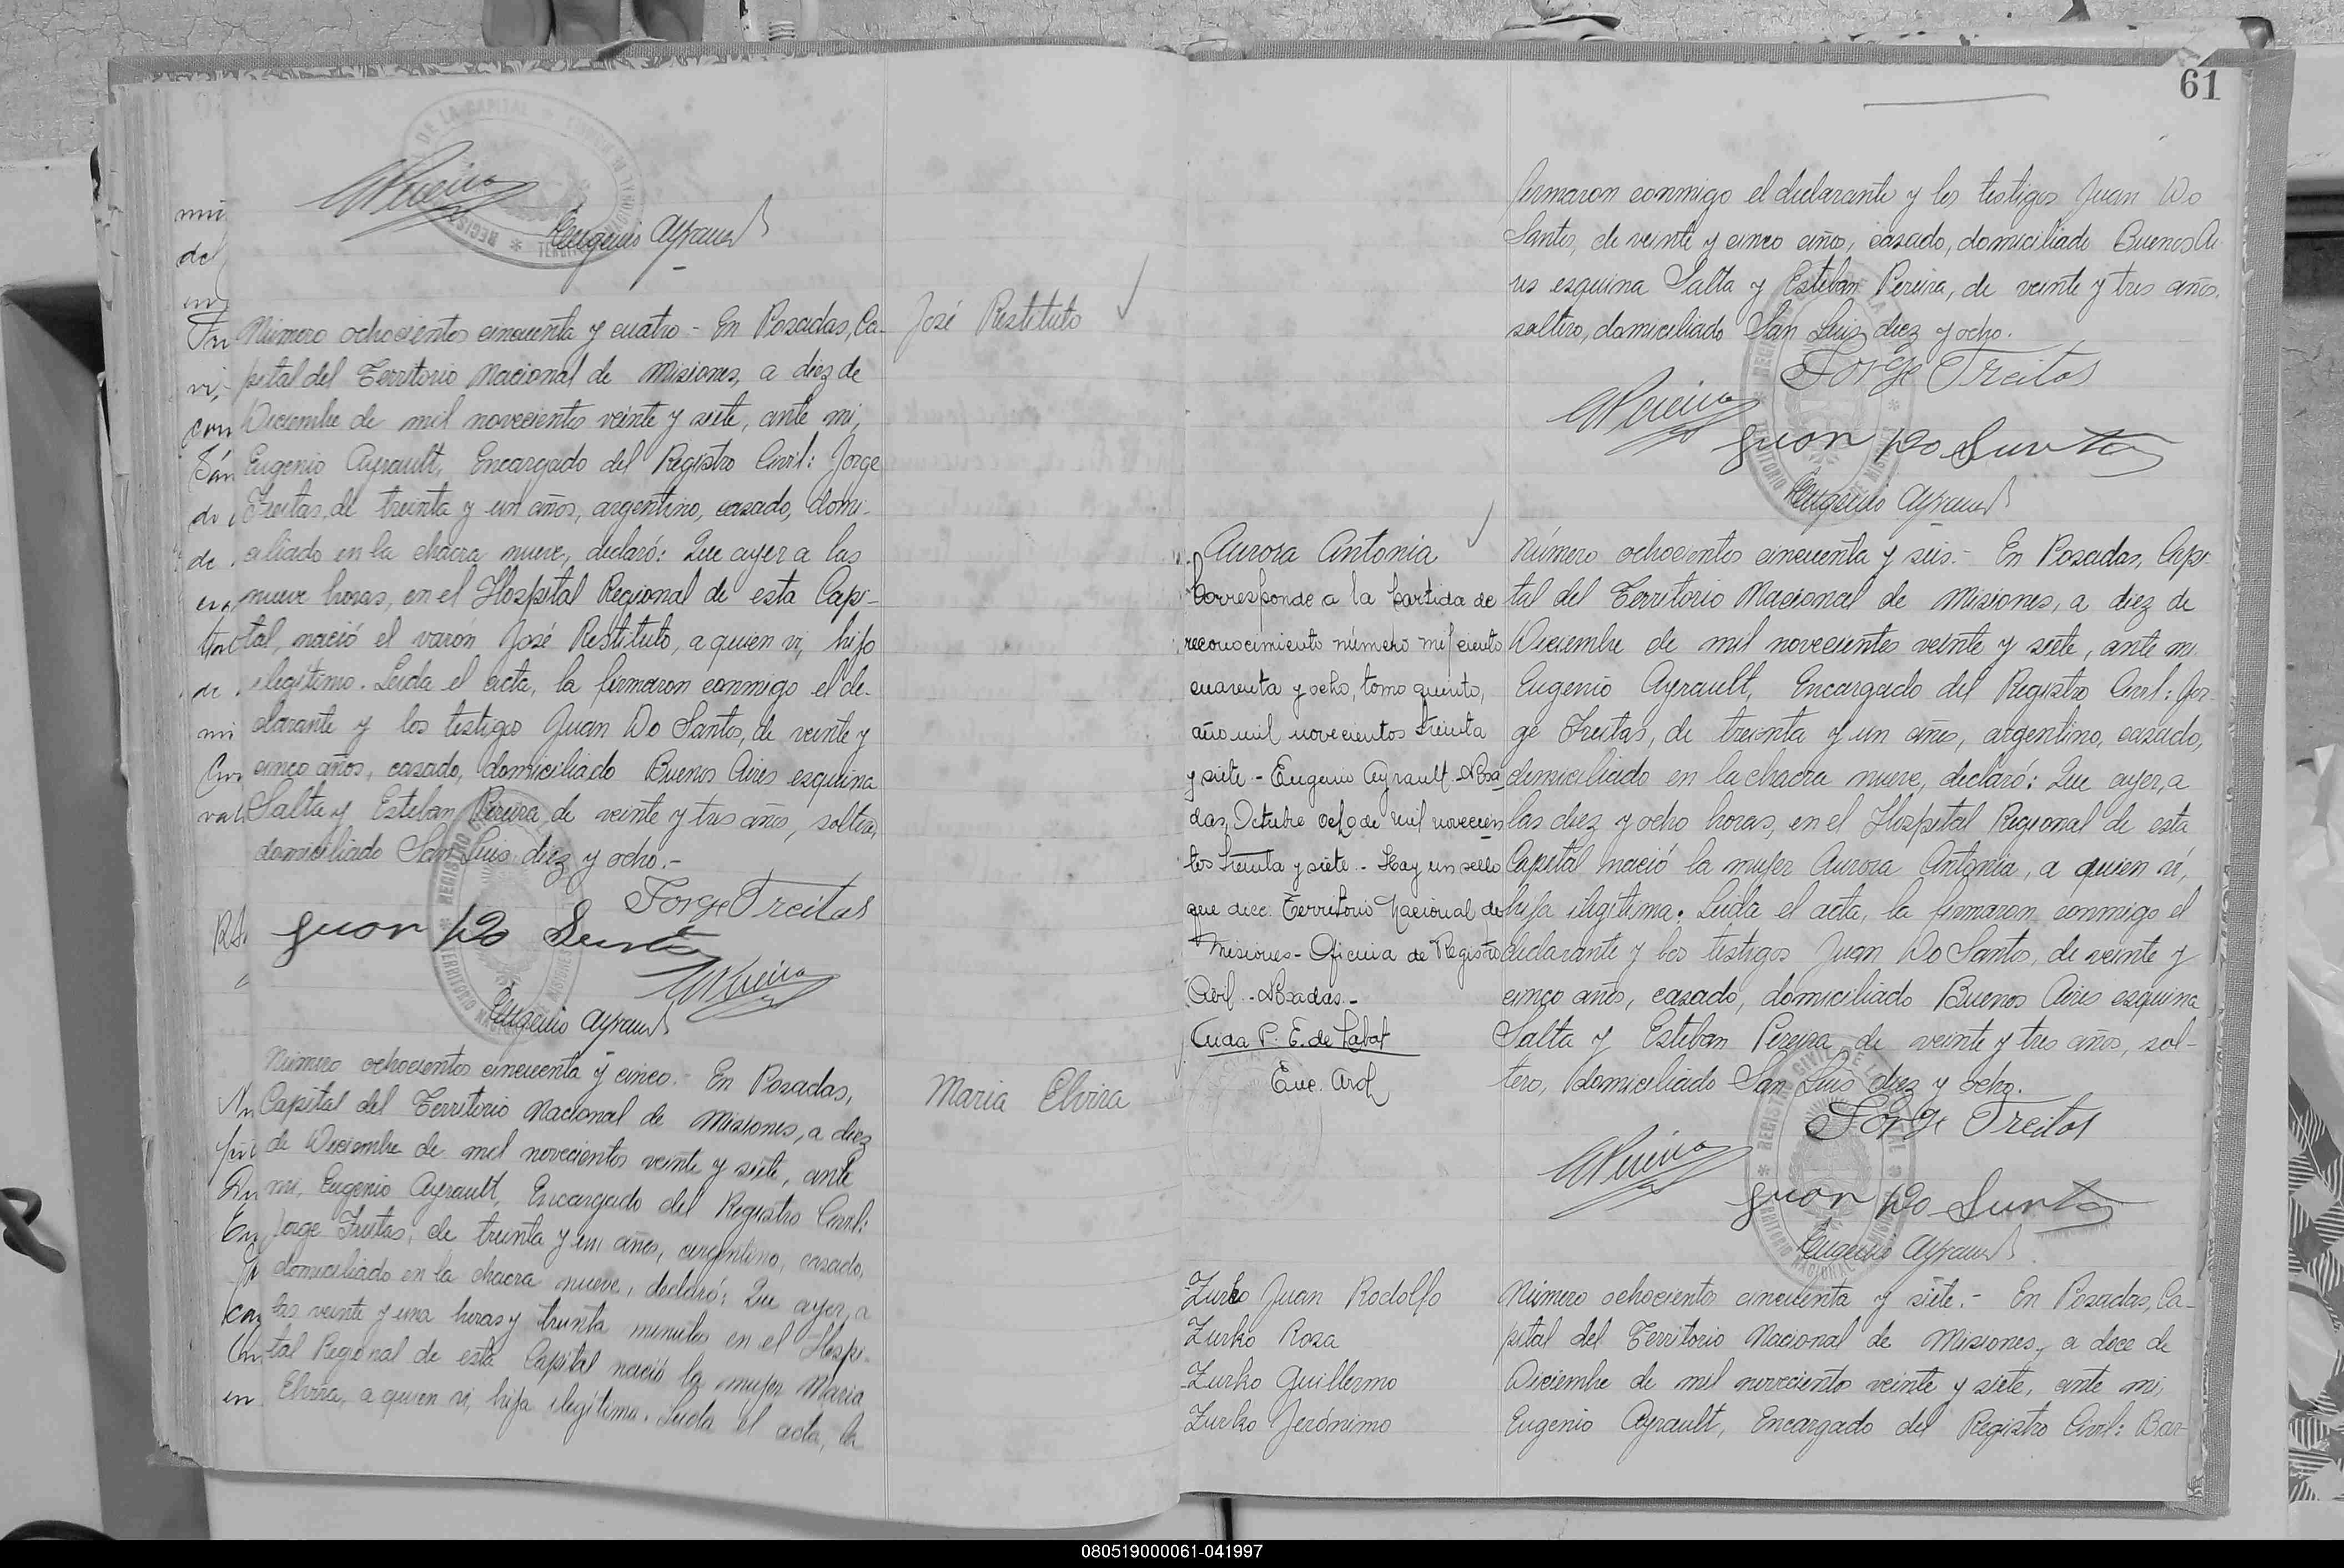 Eugenio Ayrault
José Restituto
Número ochocientos cincuenta y cuatro - En Posadas, Ca-
pital del Territorio Nacional de Misiones, a diez de
Diciembre de mil novecientos veinte y siete, ante mi,
Eugenio Ayrault, Encargado del Registro Civil: Jorge
Freitas, de treinta y un años, argentino, casado, domi-
ciliado en la chacra nueve, declaró: Que ayer a las
nueve horas, en el Hospital Regional de esta Capi-
tal, nació el varón José Restituto, a quien vi, hijo
ilegítimo. Leida el acta, la firmaron conmigo el de-
clarante y los testigos Juan Do Santos, de veinte y
cinco años, casado, domiciliado Buenos Aires esquina
Salta y Esteban Pereira, de veinte y tres años, soltero,
domiciliado San Luis diez y ocho.-
Jorge Freitas
Juan Do Santos
EPereira
Eugenio Ayrault
Maria Elvira
Número ochocientos cincuenta y cinco.- En Posadas,
Capital del Territorio Nacional de Misiones, a diez
de Diciembre de mil novecientos veinte y siete, ante
mi, Eugenio Ayrault, Encargado del Registro Civil:
Jorge Freitas, de treinta y un años, argentino, casado,
domiciliado en la chacra nueve, declaró: Que ayer, a
las veinte y una horas y treinta minutos en el Hospi-
tal Regional de esta Capital nació la mujer Maria
Elvira, a quien vi, hija ilegítima. Leida el acta, la
61
firmaron conmigo el declarante y los testigos Juan Do
Santos, de veinte y cinco años, casado, domiciliado Buenos Ai
res esquina Salta y Esteban Pereira, de veinte y tres años,
soltero, domiciliado San Luis diez y ocho.
Jorge Freitas
EPereira
Juan Do Santos
Eugenio Ayrault
Aurora Antonia
Corresponde a la partida de
reconocimiento número mil ciento
cuarenta y ocho, tomo quinto,
año mil novecientos treinta
y siete - Eugenio Ayrault - Posa
das, Octubre ocho de mil novecien
tos treinta y siete - Hay un sello
que dice: Territorio Nacional de
Misiones - Oficina de Registro
Civil - Posadas -
P. E. de Labat
Enc. Arch
Número ochocientos cincuenta y seis.- En Posadas, Capi-
tal del Territorio Nacional de Misiones, a diez de
Diciembre de mil novecientos veinte y siete, ante mi
Eugenio Ayrault, Encargado del Registro Civil: Jor-
ge Freitas, de treinta y un años, argentino, casado,
domiciliado en la chacra nueve, declaró: Que ayer, a
las diez y ocho horas, en el Hospital Regional de esta
Capital nació la mujer Aurora Antonia, a quien vi,
hija ilegítima. Leida el acta, la firmaron conmigo el
declarante y los testigos Juan Do Santos, de veinte y
cinco años, casado, domiciliado Buenos Aires esquina
Salta y Esteban Pereira, de veinte y tres años, sol-
tero, domiciliado San Luis diez y ocho.
Jorge Freitas
EPereira
Juan Do Santos
Eugenio Ayrault
Zurko Juan Rodolfo
Zurko Rosa
Zurko Guillermo
Zurko Jerónimo
Número ochocientos cincuenta y siete.- En Posadas, Ca-
pital del Territorio Nacional de Misiones, a doce de
Diciembre de mil novecientos veinte y siete, ante mi,
Eugenio Ayrault, Encargado del Registro Civil: Bar-
080519000061-041997